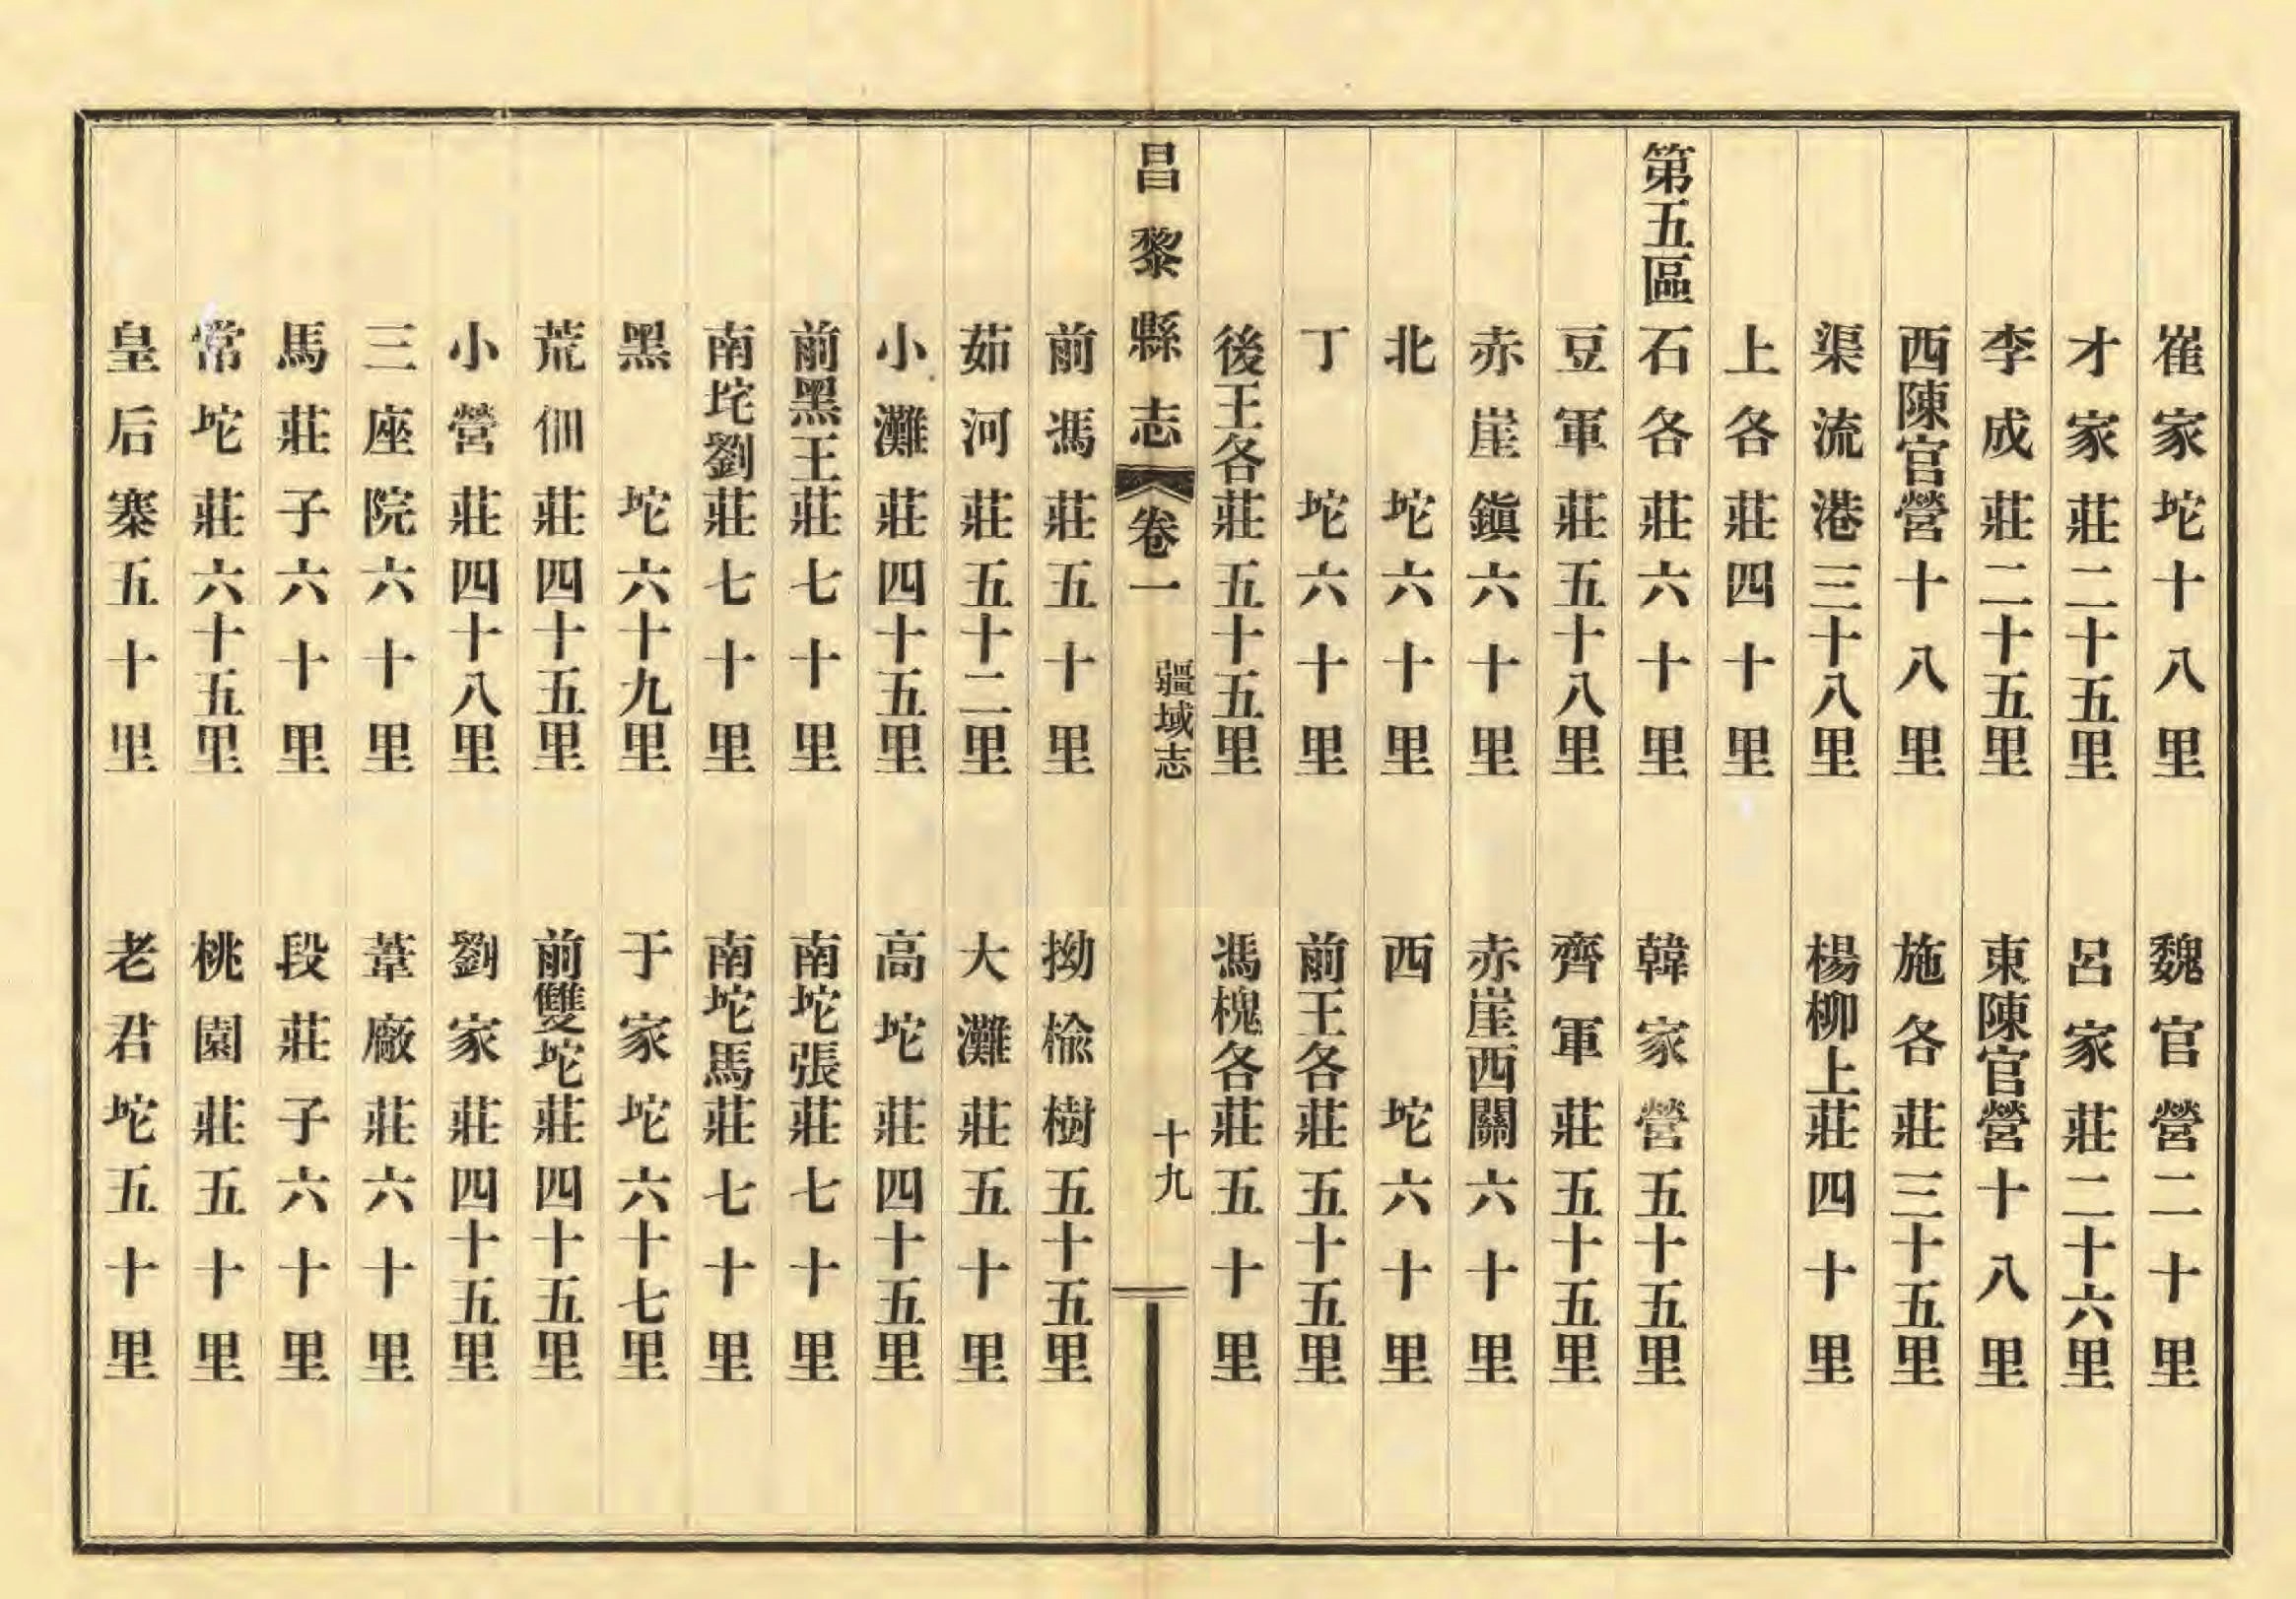 崔家坨十八里　魏官營二十里
才家莊二十五里　呂家莊二十六里
李成莊二十五里　東陳官營十八里
西陳官營十八里　施各莊三十五里
渠流港三十八里　楊柳上莊四十里
上各莊四十里
第五區　石各莊六十里　韓家營五十五里
豆軍莊五十八里　齊軍莊五十五里
赤崖鎭六十里　赤崖西關六十里
北坨六十里　西坨六十里
丁坨六十里　前王各莊五十五里
後王各莊五十五里　馮槐各莊五十里
昌黎縣志　卷一　疆域志　十九
前馮莊五十里　拗楡樹五十五里
茹河莊五十二里　大灘莊五十里
小灘莊四十五里　高坨莊四十五里
前黑王莊七十里　南坨張莊七十里
南坨劉莊七十里　南坨馬莊七十里
黑坨六十九里　于家坨六十七里
荒佃莊四十五里　前雙坨莊四十五里
小營莊四十八里　劉家莊四十五里
三座院六十里　葦廠莊六十里
馬莊子六十里　段莊子六十里
常坨莊六十五里　桃園莊五十里
皇后寨五十里　老君坨五十里